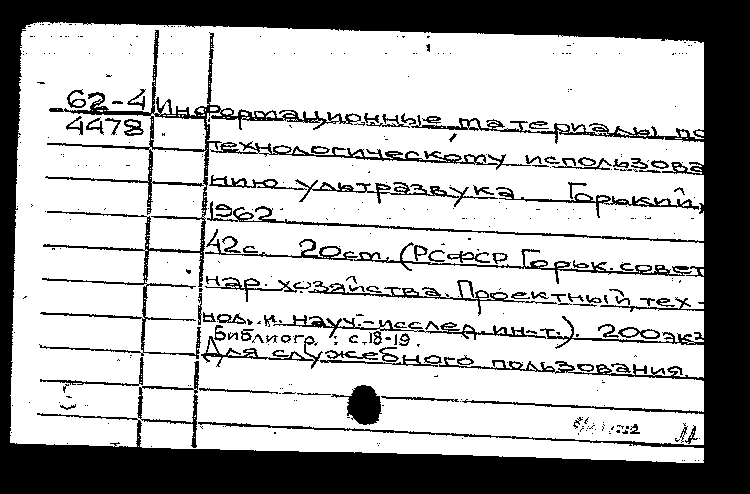 62-4 Информационные материалы по
4478
технологическому использова
нию ультразвука. Горький,
1962.
42с. 20см. (РСФСР. Горьк. совет
нар. хозяйства. Проектный, тех-
нол. и науч.-исслед. ин-т.). 200экз
Библиогр.: с.18-19.
Для служебного пользования.